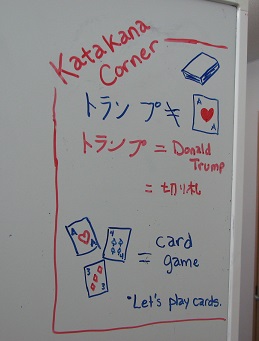 Katakana
Corner
トランプ≠
A
A
トランプ = Donald
Trump
= 切り札
A
A
4
4
3
3
= card
game
*Let's play cards.